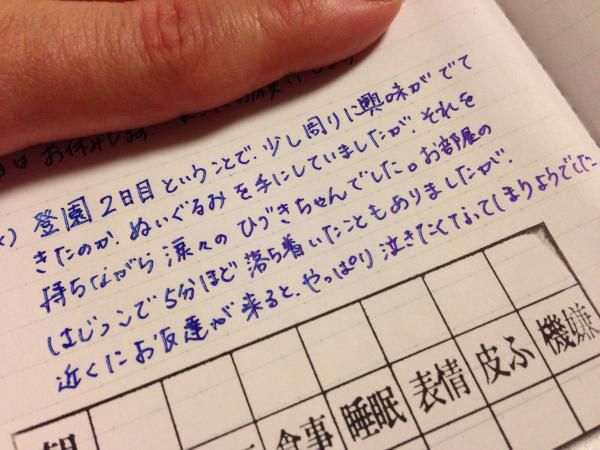 日はお休みします。
登園2日目ということで、少し周りに興味がでて
きたのか、ぬいぐるみを手にしていましたが、それを
持ちながら涙々のひづきちゃんでした。お部屋の
はじっこで5分ほど落ち着いたこともありましたが、
近くにお友達が来ると、やっぱり泣きたくなってしまうようでした
食事 睡眠 表情 皮ふ 機嫌